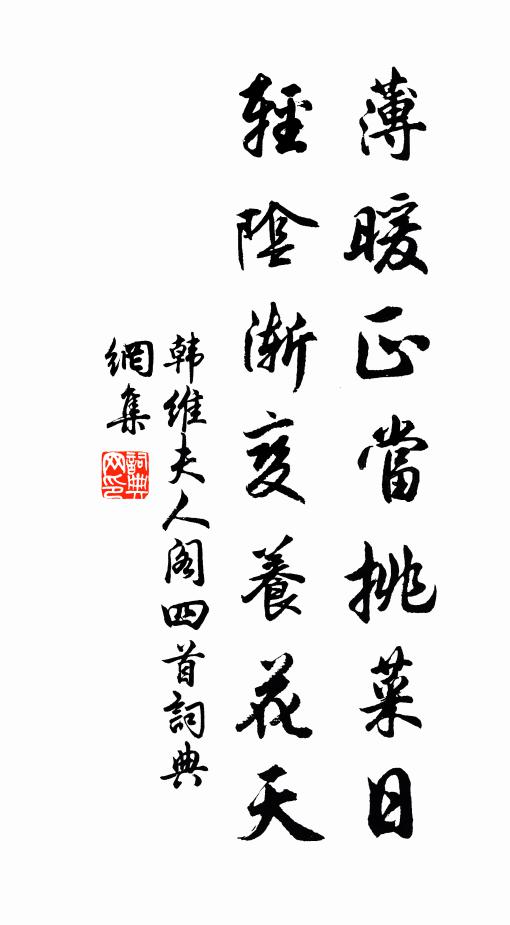 薄暖正當挑菜日
輕陰漸變養花天
韩維夫人阁四首詞典
網集
詞典網印